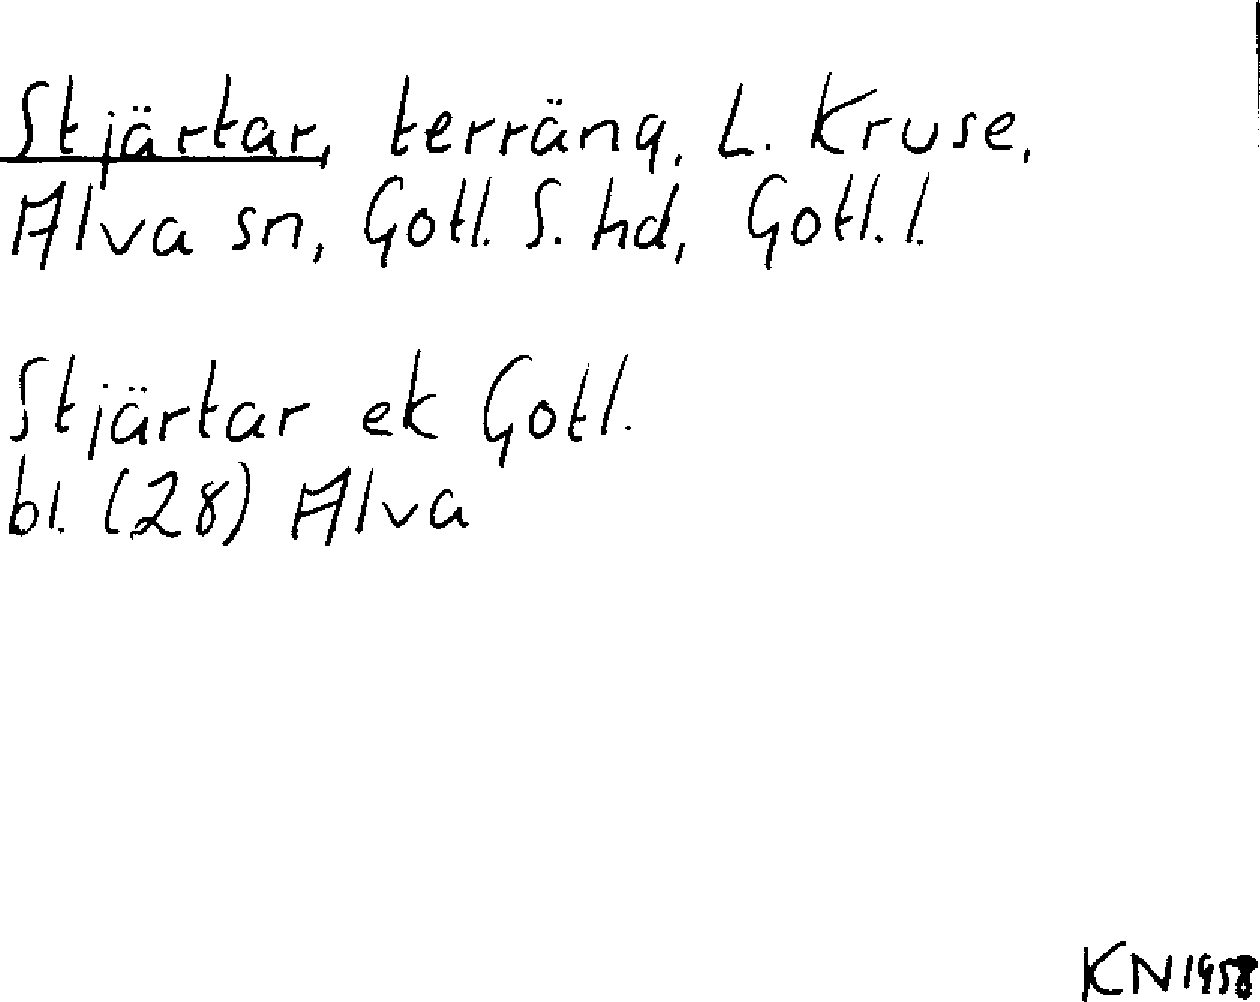 Stjärtar, terräng, L. Kruse,
Alva sn, Gotl. S. hd, Gotl. l.
Stjärtar ek Gotl.
bl. (28) Alva
KN 1958